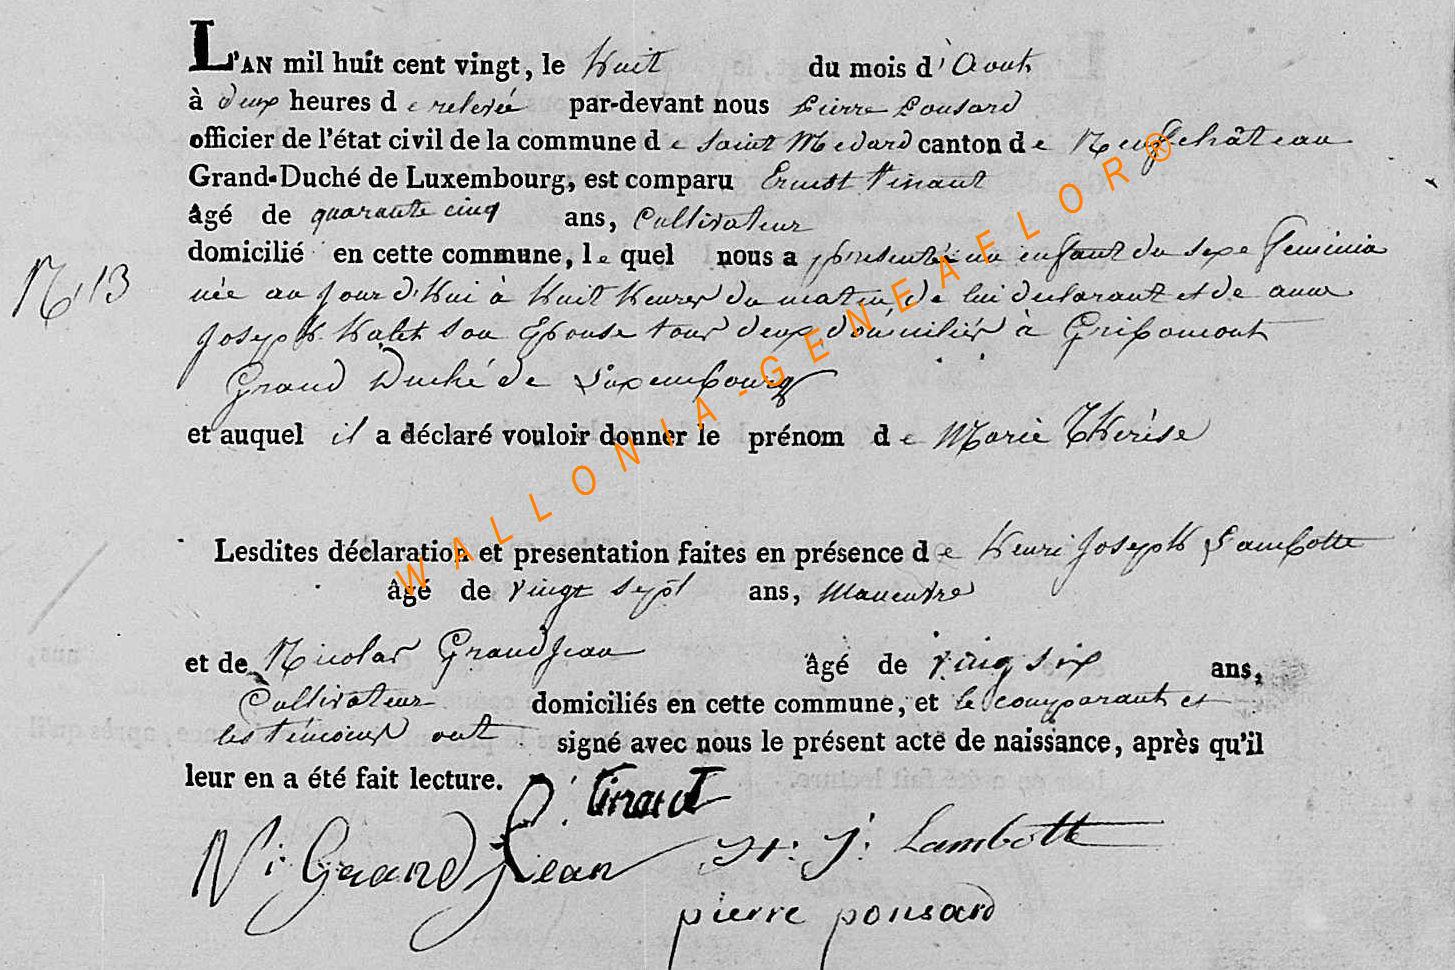 L'AN mil huit cent vingt, le huit du mois d'Aout
à deux heures de relevée par-devant nous Pierre Ponsard
officier de l'état civil de la commune de Saint Medard canton de Neufchâteau
Grand-Duché de Luxembourg, est comparu Ernest Tinant
âgé de quarante cinq ans, Cultivateur
domicilié en cette commune, lequel nous a présenté un enfant du sexe feminin
N. 13
née au jour d'hui à huit heures du matin, de lui declarant et de anne
joseph halet son Epouse tous deux domiciliés à Gripomont
Grand Duché de Luxembourg
et auquel il a déclaré vouloir donner le prénom de Marie Thérèse
Lesdites déclaration et presentation faites en présence de henri joseph Lambotte
âgé de vingt sept ans, Maneuvre
et de Nicolas Grandjean âgé de ving six ans,
Cultivateur domiciliés en cette commune, et le comparant et
les témoins ont signé avec nous le présent acte de naissance, après qu'il
leur en a été fait lecture.
Tinant
N: Grandjean
H: J: Lambotte
pierre ponsard
WALLONIA-GENEAELOR®